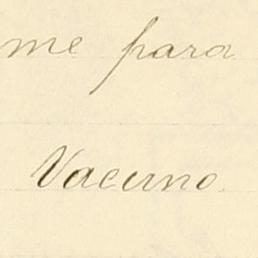 me para
Vacuno